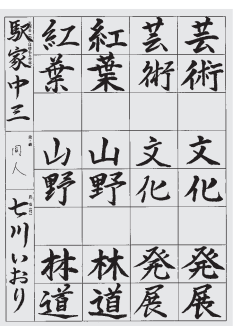 芸術 文化 発展
芸術 文化 発展
紅葉 山野 林道
紅葉 山野 林道
駅家中三 同人 七川いおり